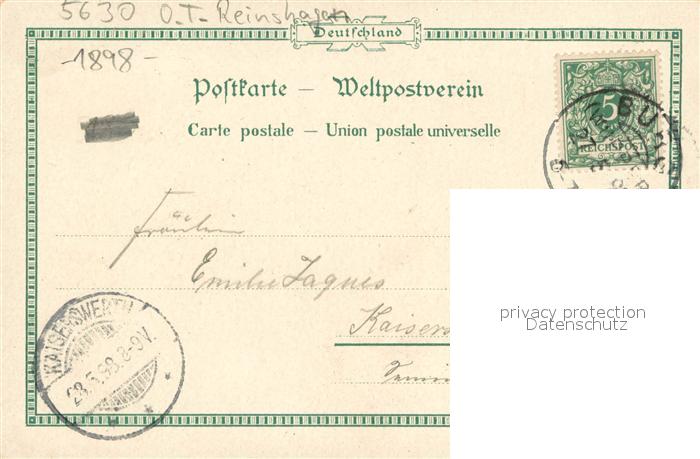 5630 O.T. Reinshagen
-1898-
Deutschland
Postkarte — Weltpostverein
Carte postale — Union postale universelle
5
REICHSPOST
BU
Fräulein
Emilie Jaques
Kaisers
KAISERSWERTH
28.5.98.8-9V.
privacy protection
Datenschutz